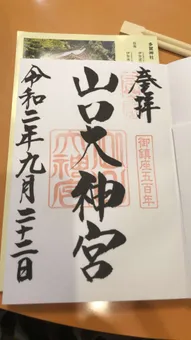 奉拝
御鎮座五百年
山口大神宮
令和二年九月二十二日